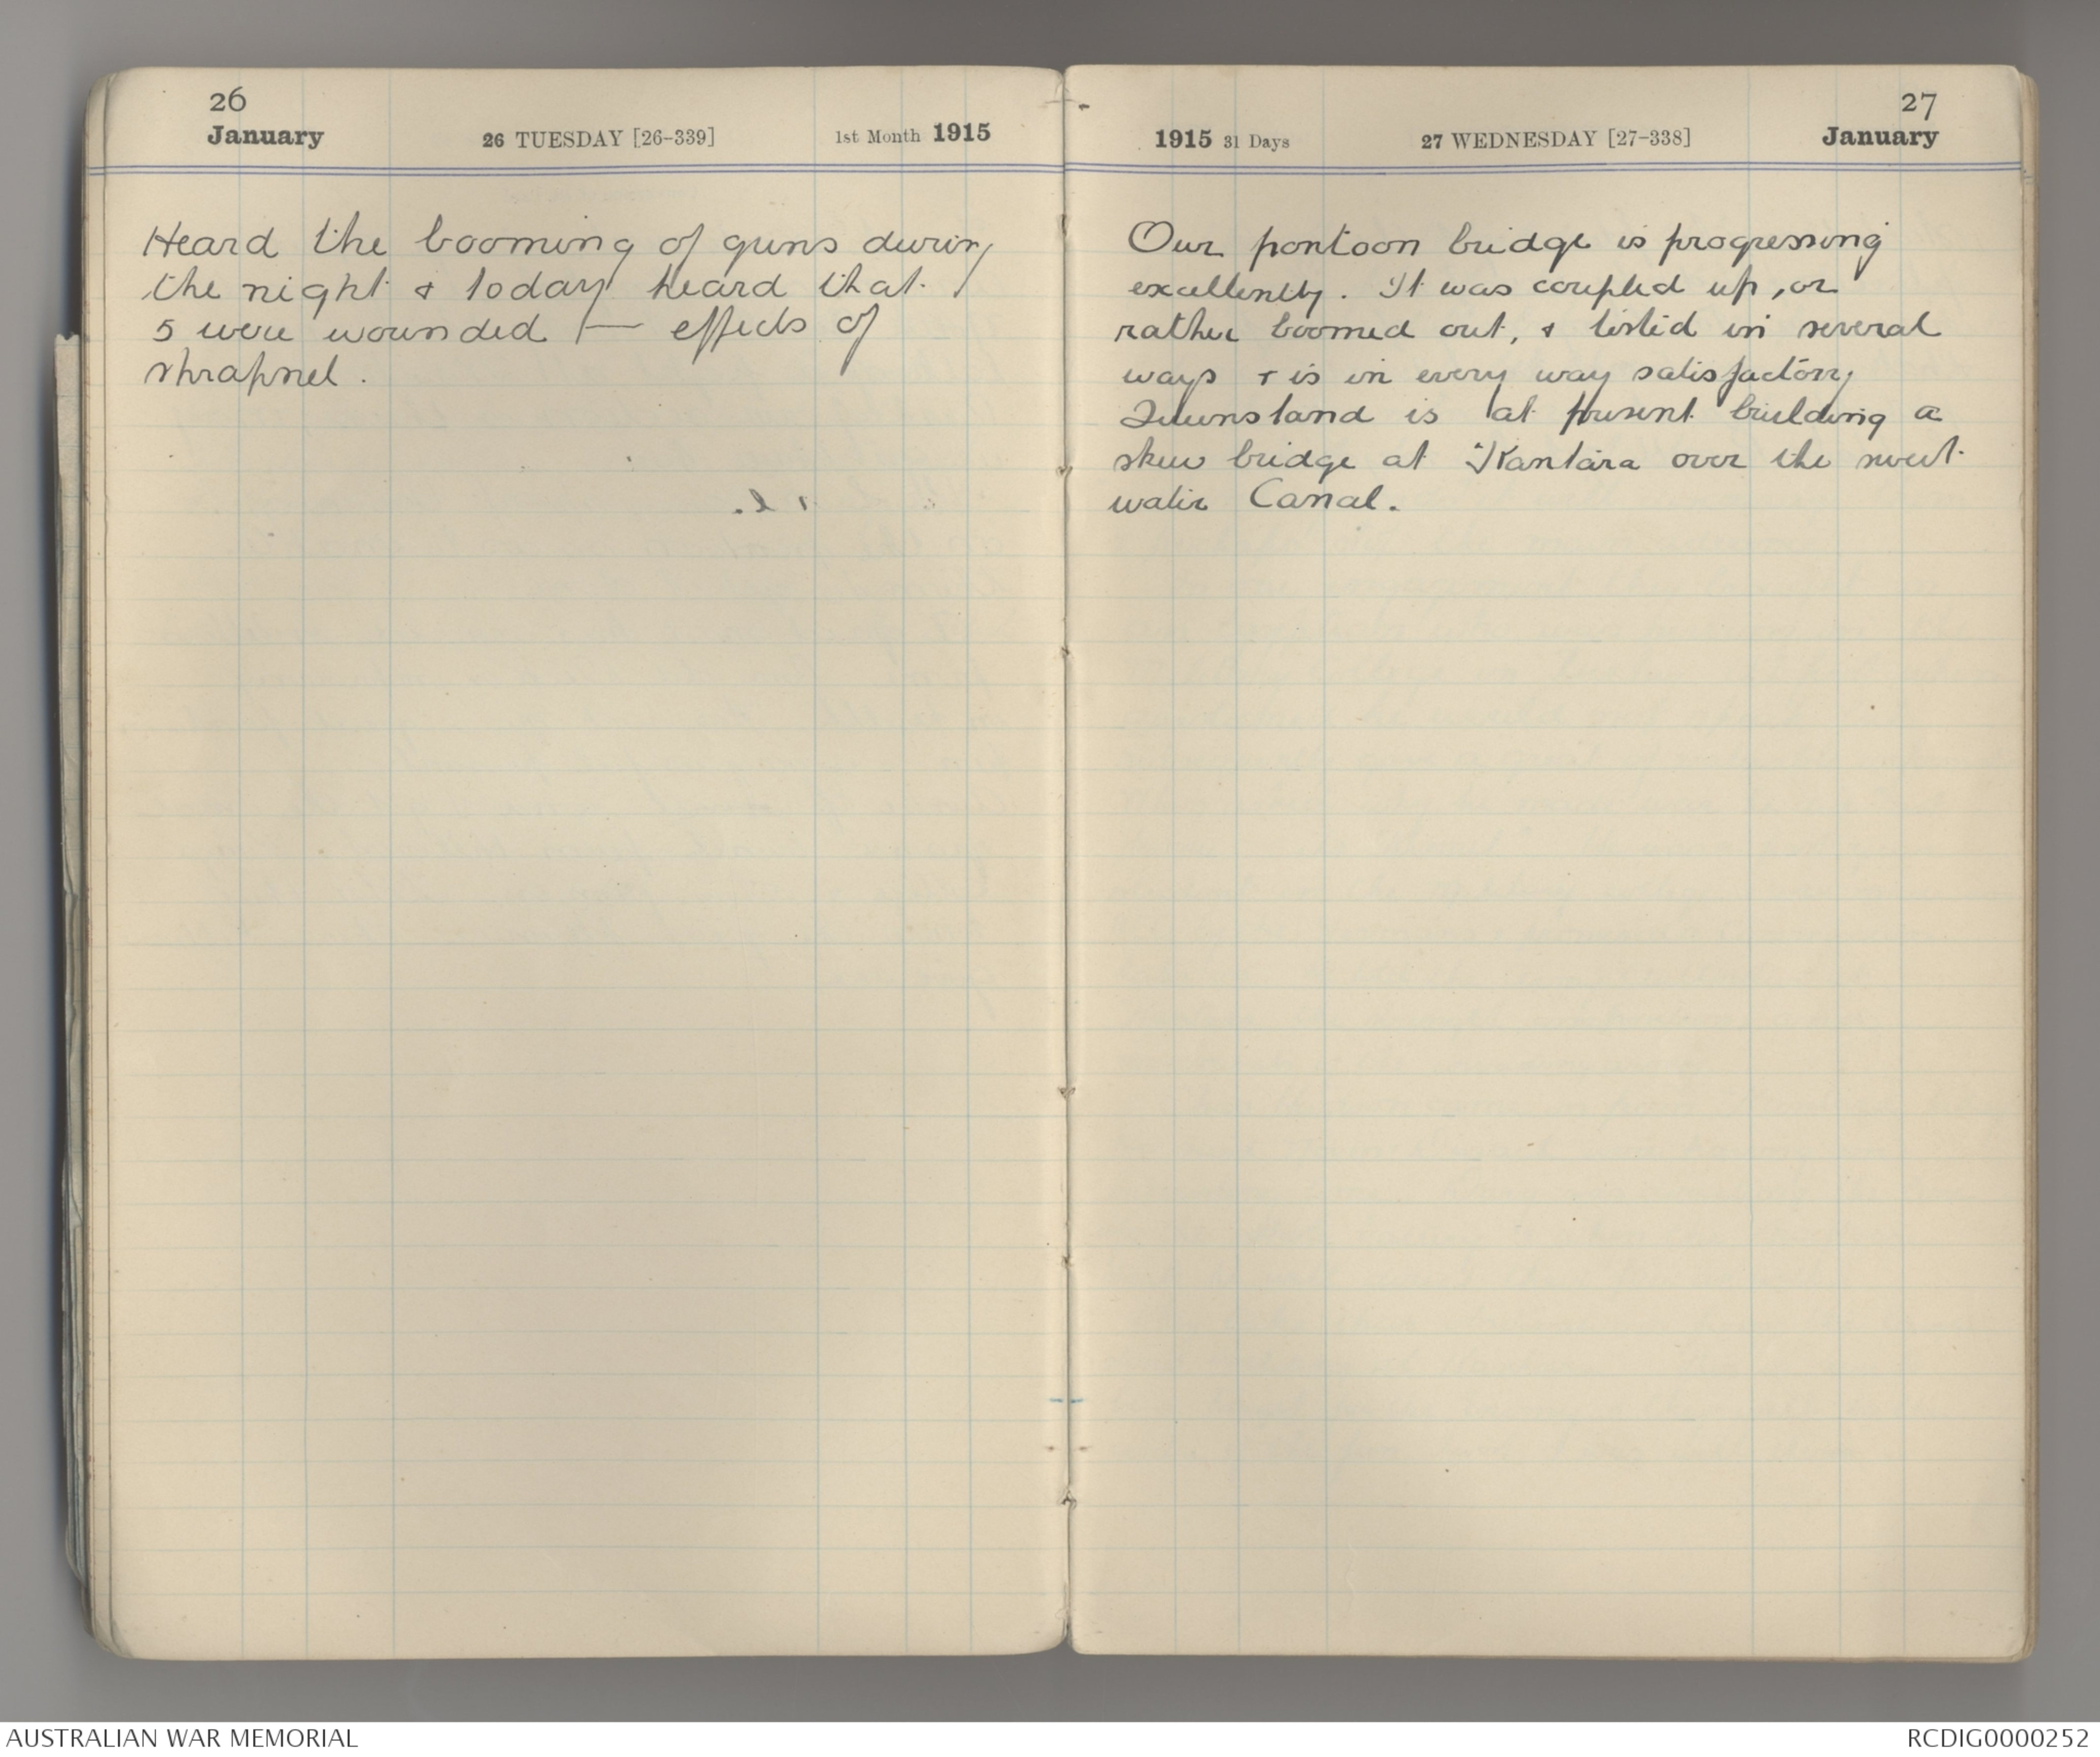 26
January 26 TUESDAY [26-339] 1st Month 1915
Heard the booming of guns during
the night & today heard that
5 were wounded — effects of
shrapnel.
27
1915 31 Days 27 WEDNESDAY [27-338] January
Our pontoon bridge is progressing
excellently. It was coupled up, or
rather boomed out, & tested in several
ways & is in every way satisfactory
Queensland is at present building a
skew bridge at Kantara over the sweet
water Canal.
AUSTRALIAN WAR MEMORIAL RCDIG0000252